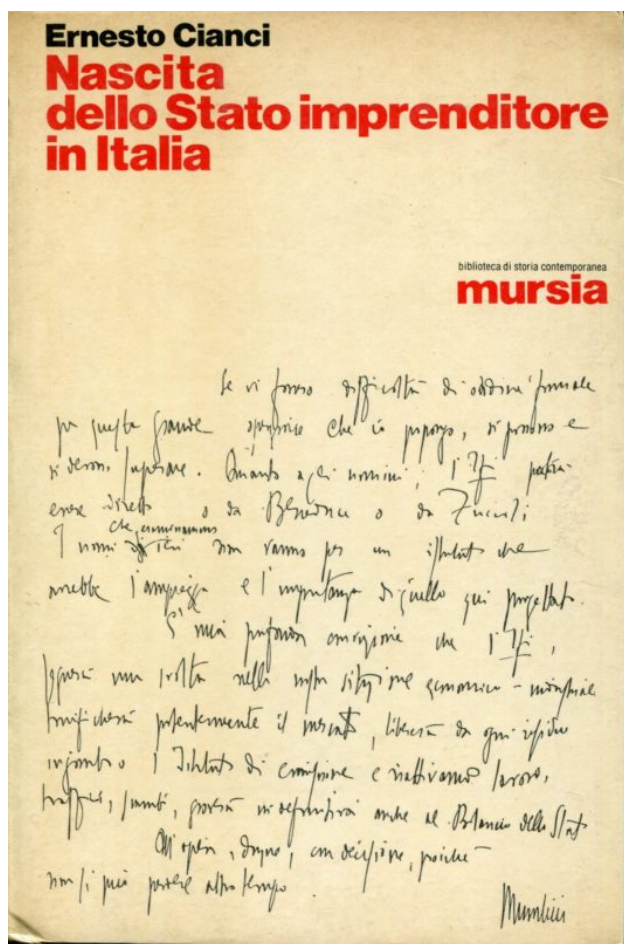 Ernesto Cianci
Nascita
dello Stato imprenditore
in Italia
biblioteca di storia contemporanea
mursia
Se vi fossero difficoltà di ordine formale
per questa grande operazione che io propongo, si possono e
si devono superare. Quanto agli uomini, l'Ifi potrà
essere diretto o da Beneduce o da
I nomi che non vanno per un istituto che
avrebbe l'ampiezza e l'importanza di quello qui progettato.
E' mia profonda convinzione che l'Ifi,
segnerà una svolta nella nostra situazione economico-industriale
tonificherà potentemente il mercato, libererà da ogni residuo
ingombro l'Istituto di emissione e riattivando lavoro,
traffici, scambi, gioverà in definitiva anche al Bilancio dello Stato
All'opera, dunque, con decisione, poiché
non si può perdere altro tempo.
Mussolini